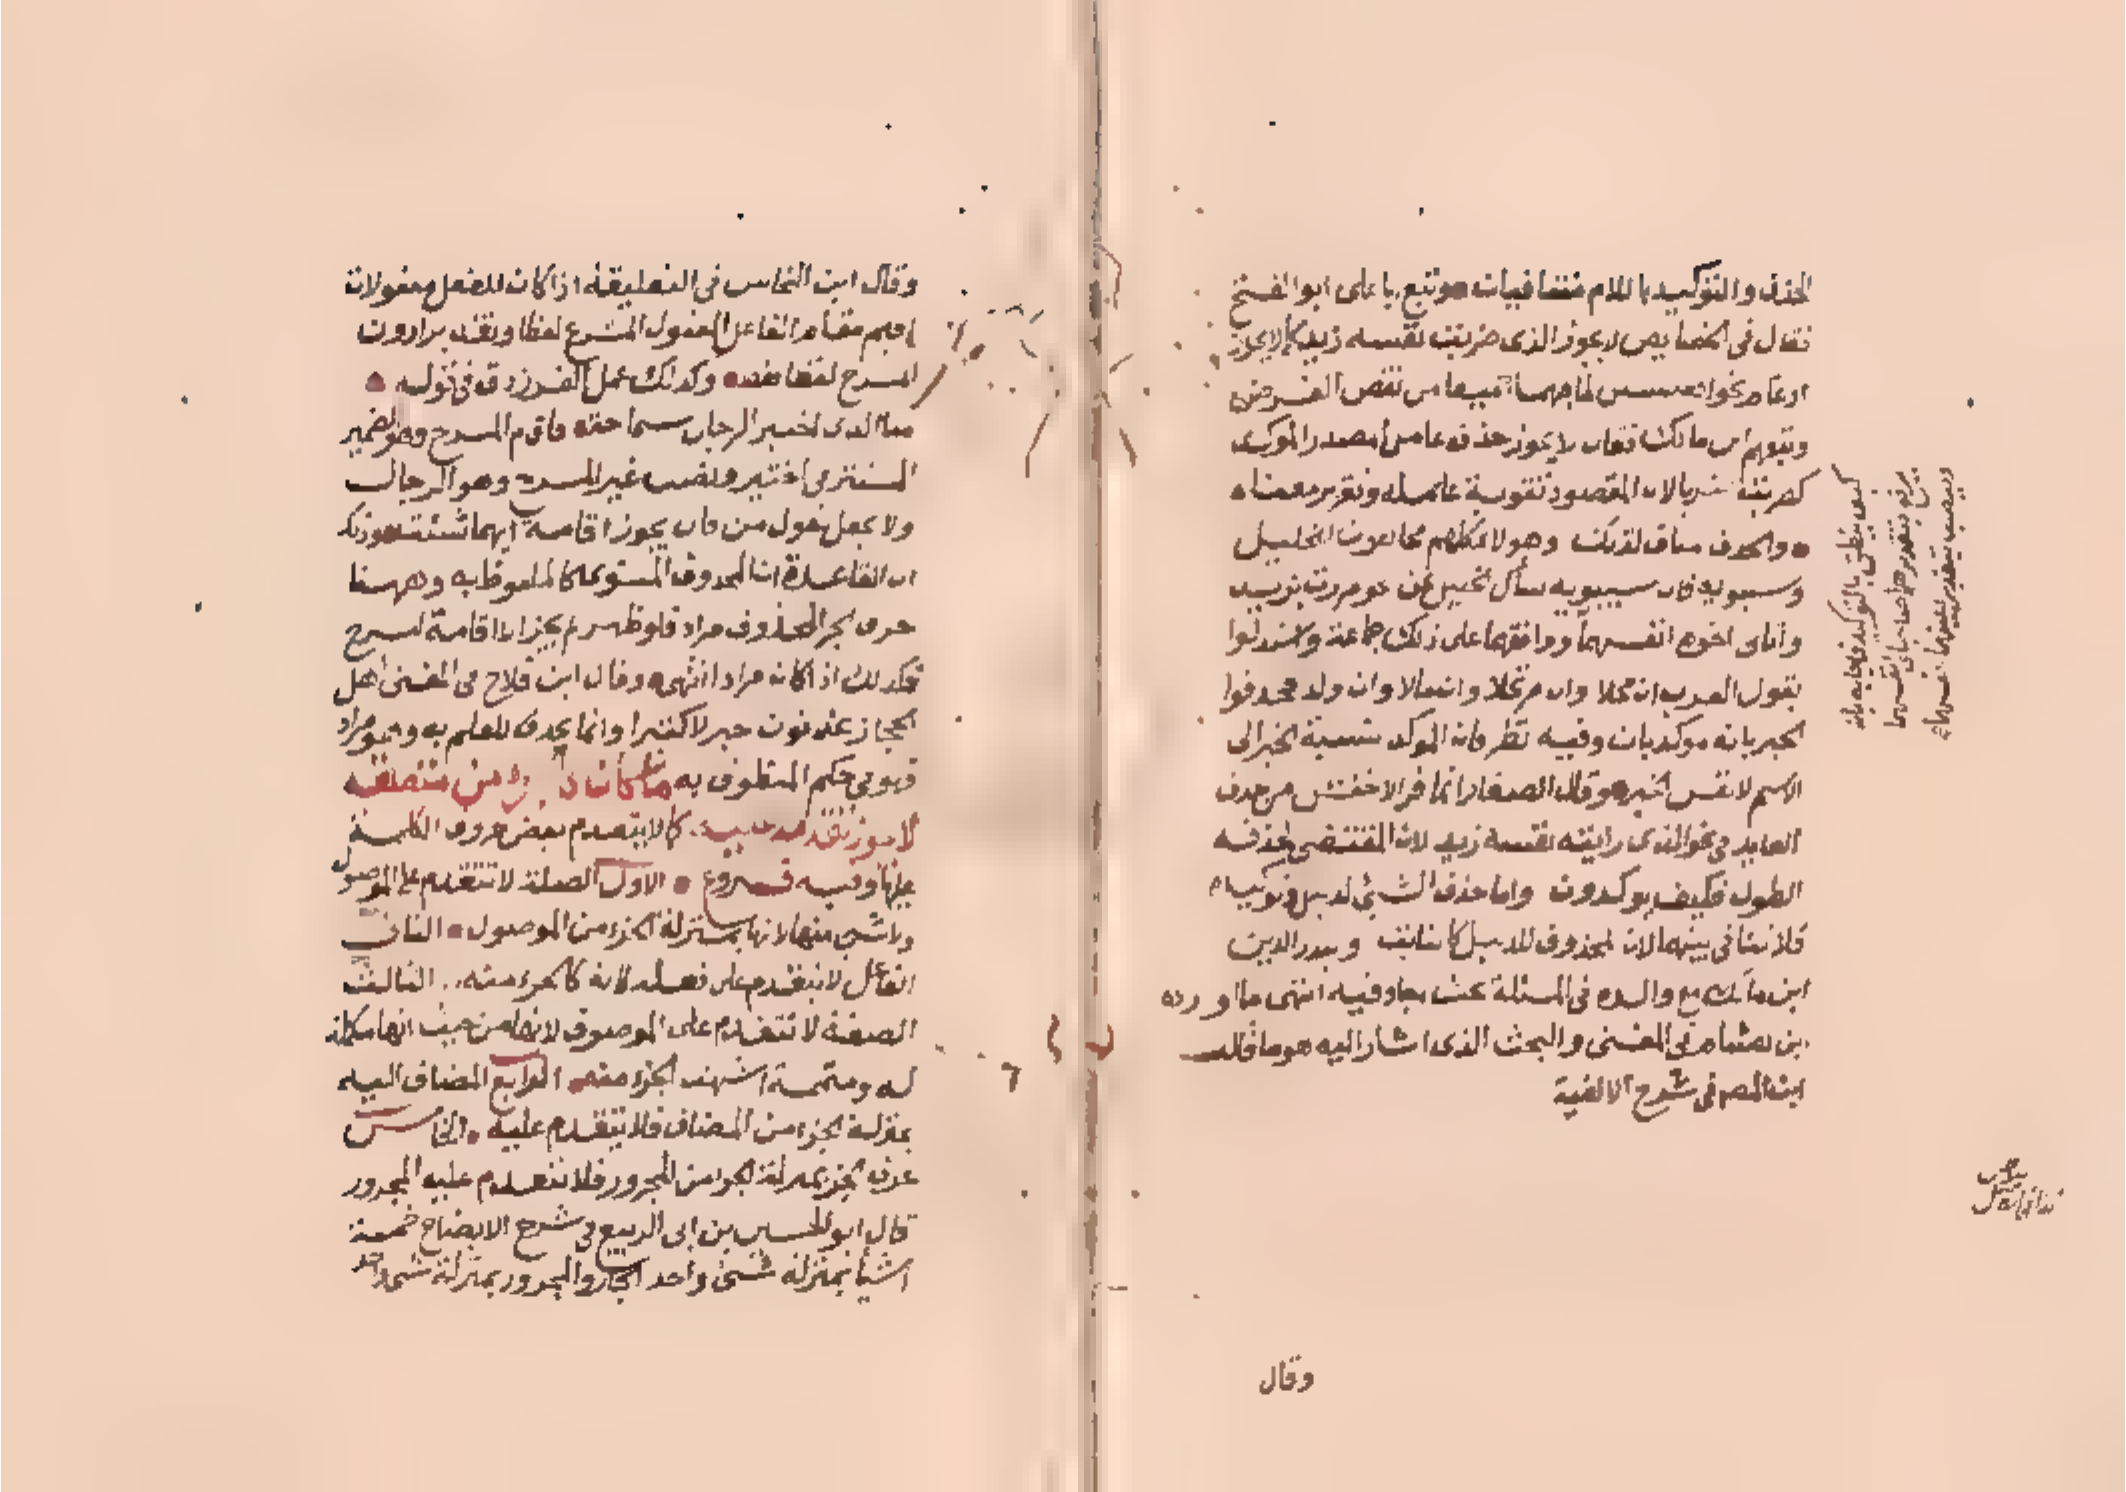 الحذف والتوكيد باللام متنافيان وتبع ابا على ابو الفتح
فقال فى الخصايص لا يجوز الذى ضربت نفسه زيد كما لا يجوز
ادغام نحو اقعنسس لما فيهما جميعا من نقض الغرض
وتبعهم ابن مالك فقال لا يجوز حذف عامل المصدر الموكد
كضربته ضربا لان المقصود تقويه عامله وتقرير معناه
والحذف مناف لذلك وهولا كلهم مخالفون للخليل
وسيبويه فان سيبويه سأل الخليل عن نحو مررت بزيد
واتانى اخوه انفسهما ووافقهما على ذلك جماعة واستدلوا
بقول العرب ان محلا وان مرتحلا وان مالا وان ولدا فحذفوا
الخبر مع انه موكد بان وفيه نظر فان الموكد نسبة الخبر الى
الاسم لا نفس الخبر وقال الصفار انما فر الاخفش من حذف
العايد فى نحو الذى رايته نفسه زيد لان المقتضى لحذفه
الطول فكيف يوكدون واما حذف الشئ لدليل وتوكيده
فلا تنافى بينهما لان المحذوف لدليل كالثابت وبدر الدين
ابن مالك مع والده فى المسئلة بحث اجاد فيه انتهى ما اورده
ابن هشام فى المغنى والبحث الذى اشار اليه هو ما قاله
ابن المص فى شرح الالفية
وقال
وقال ابن النحاس فى التعليقة اذا كان للفعل مفعولات
اقيم مقام الفاعل المفعول المسرح لفظا وتقديرا دون
المسرح لفظا فقط وكذلك عمل الفرزدق فى قوله
منا الذى اختير الرجال سماحة فاقام المسرح وهو الضمير
المستتر فى اختير ونصب غير المسرح وهو الرجال
ولا تجعل بقول من قال يجوز اقامة ايهما شئت وذلك
ان القاعدة ان المحذوف المنوى كالملفوظ به وههنا
حرف الجر المحذوف مراد فلو ظهر لم يجز الا اقامة المسرح
فكذلك اذا كان مرادا انتهى وقال ابن فلاح فى المغنى اهل
الحجاز يحذفون خبر لا كثيرا وانما يحذف للعلم به وهو مراد
فهو فى حكم المنطوق به ما كان من متعلقه
لا يجوز تقدمه عليه كما لا يتقدم بعض حروف الكلمة
عليها وفيه فروع الاول الصلة لا تتقدم على الموصول
ولا شئ منها لانها بمنزلة الجزء من الموصول الثانى
الفاعل لا يتقدم على فعله لانه كالجزء منه الثالث
الصفة لا تتقدم على الموصوف لانها من حيث انها مكملة
له ومتممة اشبهت الجزء منه الرابع المضاف اليه
بمنزلة الجزء من المضاف فلا يتقدم عليه الخامس
حرف الجر بمنزلة الجزء من المجرور فلا يتقدم عليه المجرور
قال ابو الحسين بن ابى الربيع فى شرح الايضاح خمسة
اشيأ بمنزلة شئ واحد الجار والمجرور بمنزلة شئ واحد